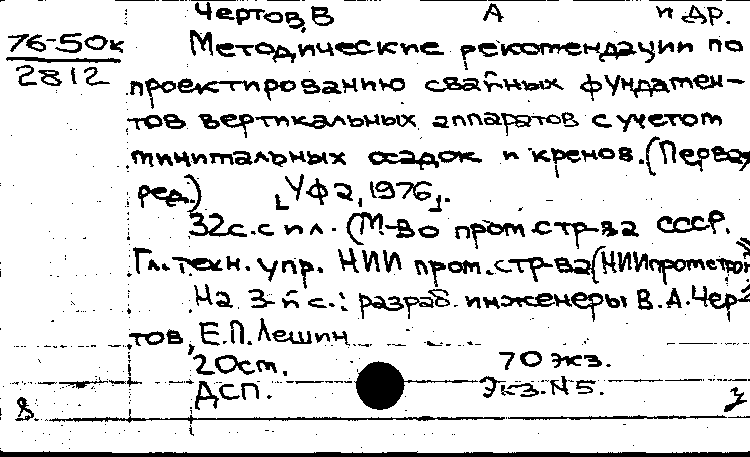 Чертов, В А и др.
76-50к Методические рекомендации по
2812 проектированию свайных фундамен-
тов вертикальных аппаратов с учетом
минимальных осадок и кренов. (Первая
ред.) [Уфа, 1976].
32с. с ил. (М-во пром. стр-ва СССР.
Гл. техн. упр. НИИ пром. стр-ва (НИИпромстрой))
На 3-й с.: разраб. инженеры В.А. Чер-
тов, Е.П. Лешин
20см. 70 экз.
ДСП. Экз. N 5.
8 У